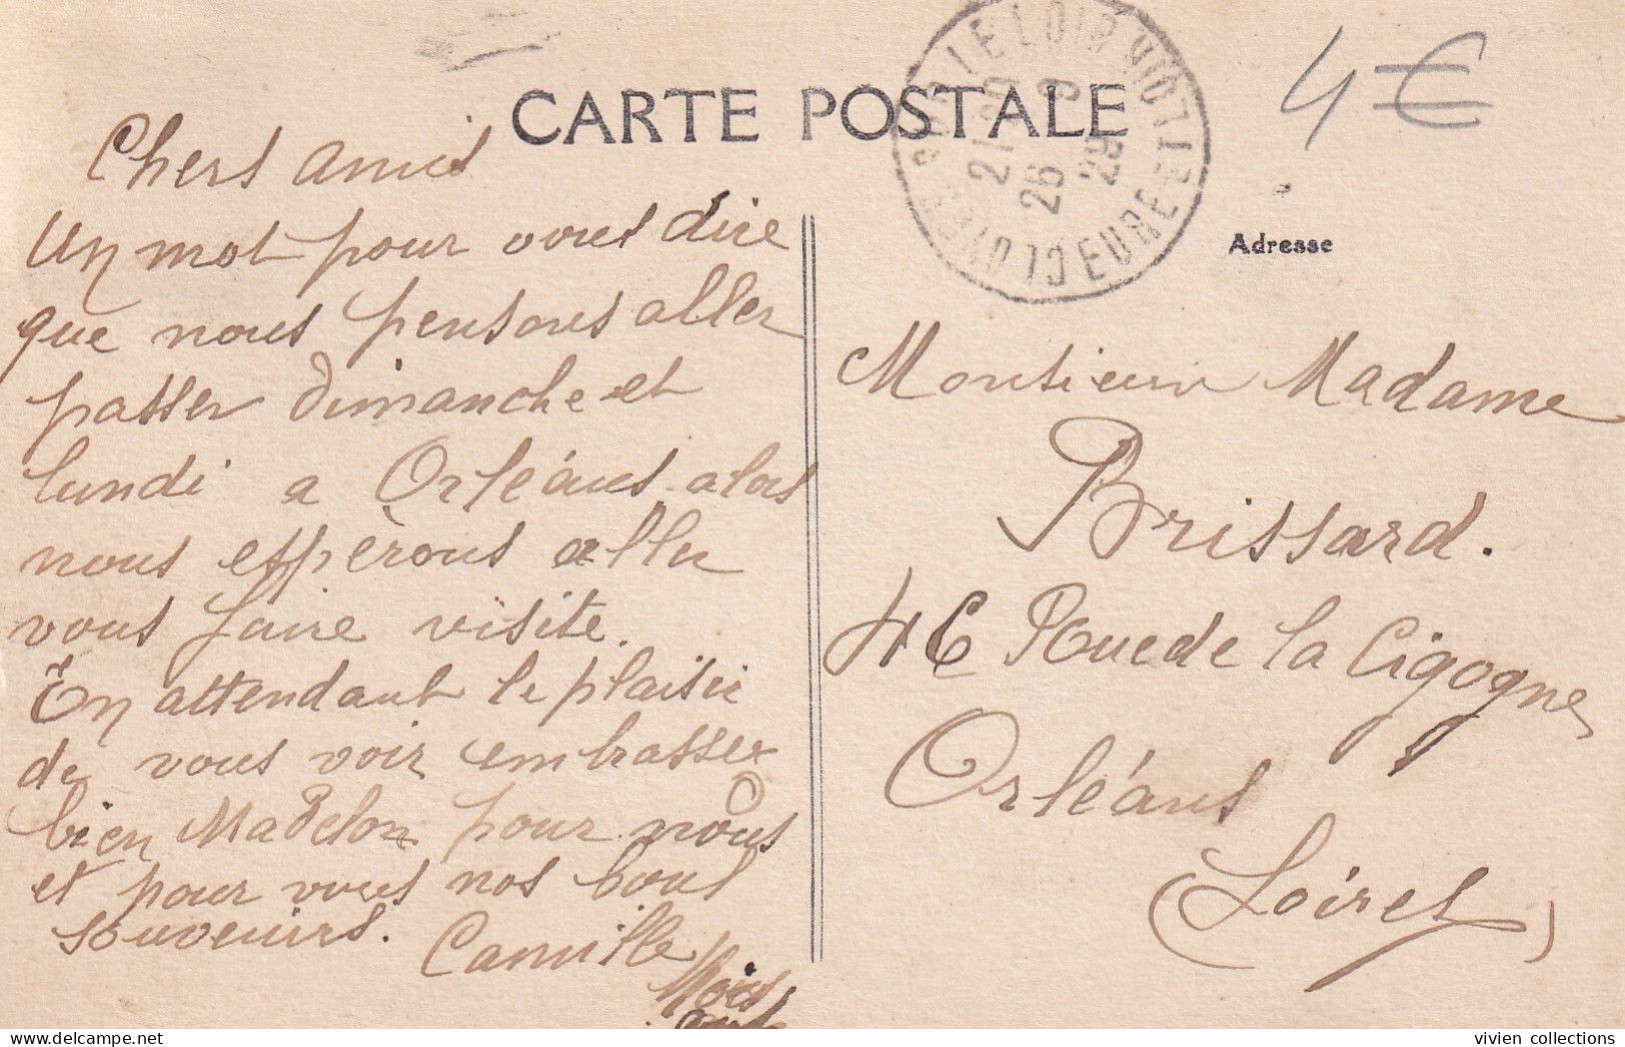 CARTE POSTALE
4€
Adresse
Chers amis
Un mot pour vous dire
que nous pensons aller
passer dimanche et
lundi a Orléans alors
nous espèrons aller
vous faire visite.
En attendant le plaisir
de vous voir embrasser
bien Madelon pour nous
et pour vous nos bons
souvenirs.
Camille
Monsieur Madame
Brissard.
46 Rue de la Cigogne
Orléans
(Loiret)
CLOYES SUR LE LOIR
EURE ET
26 9
vivien collections